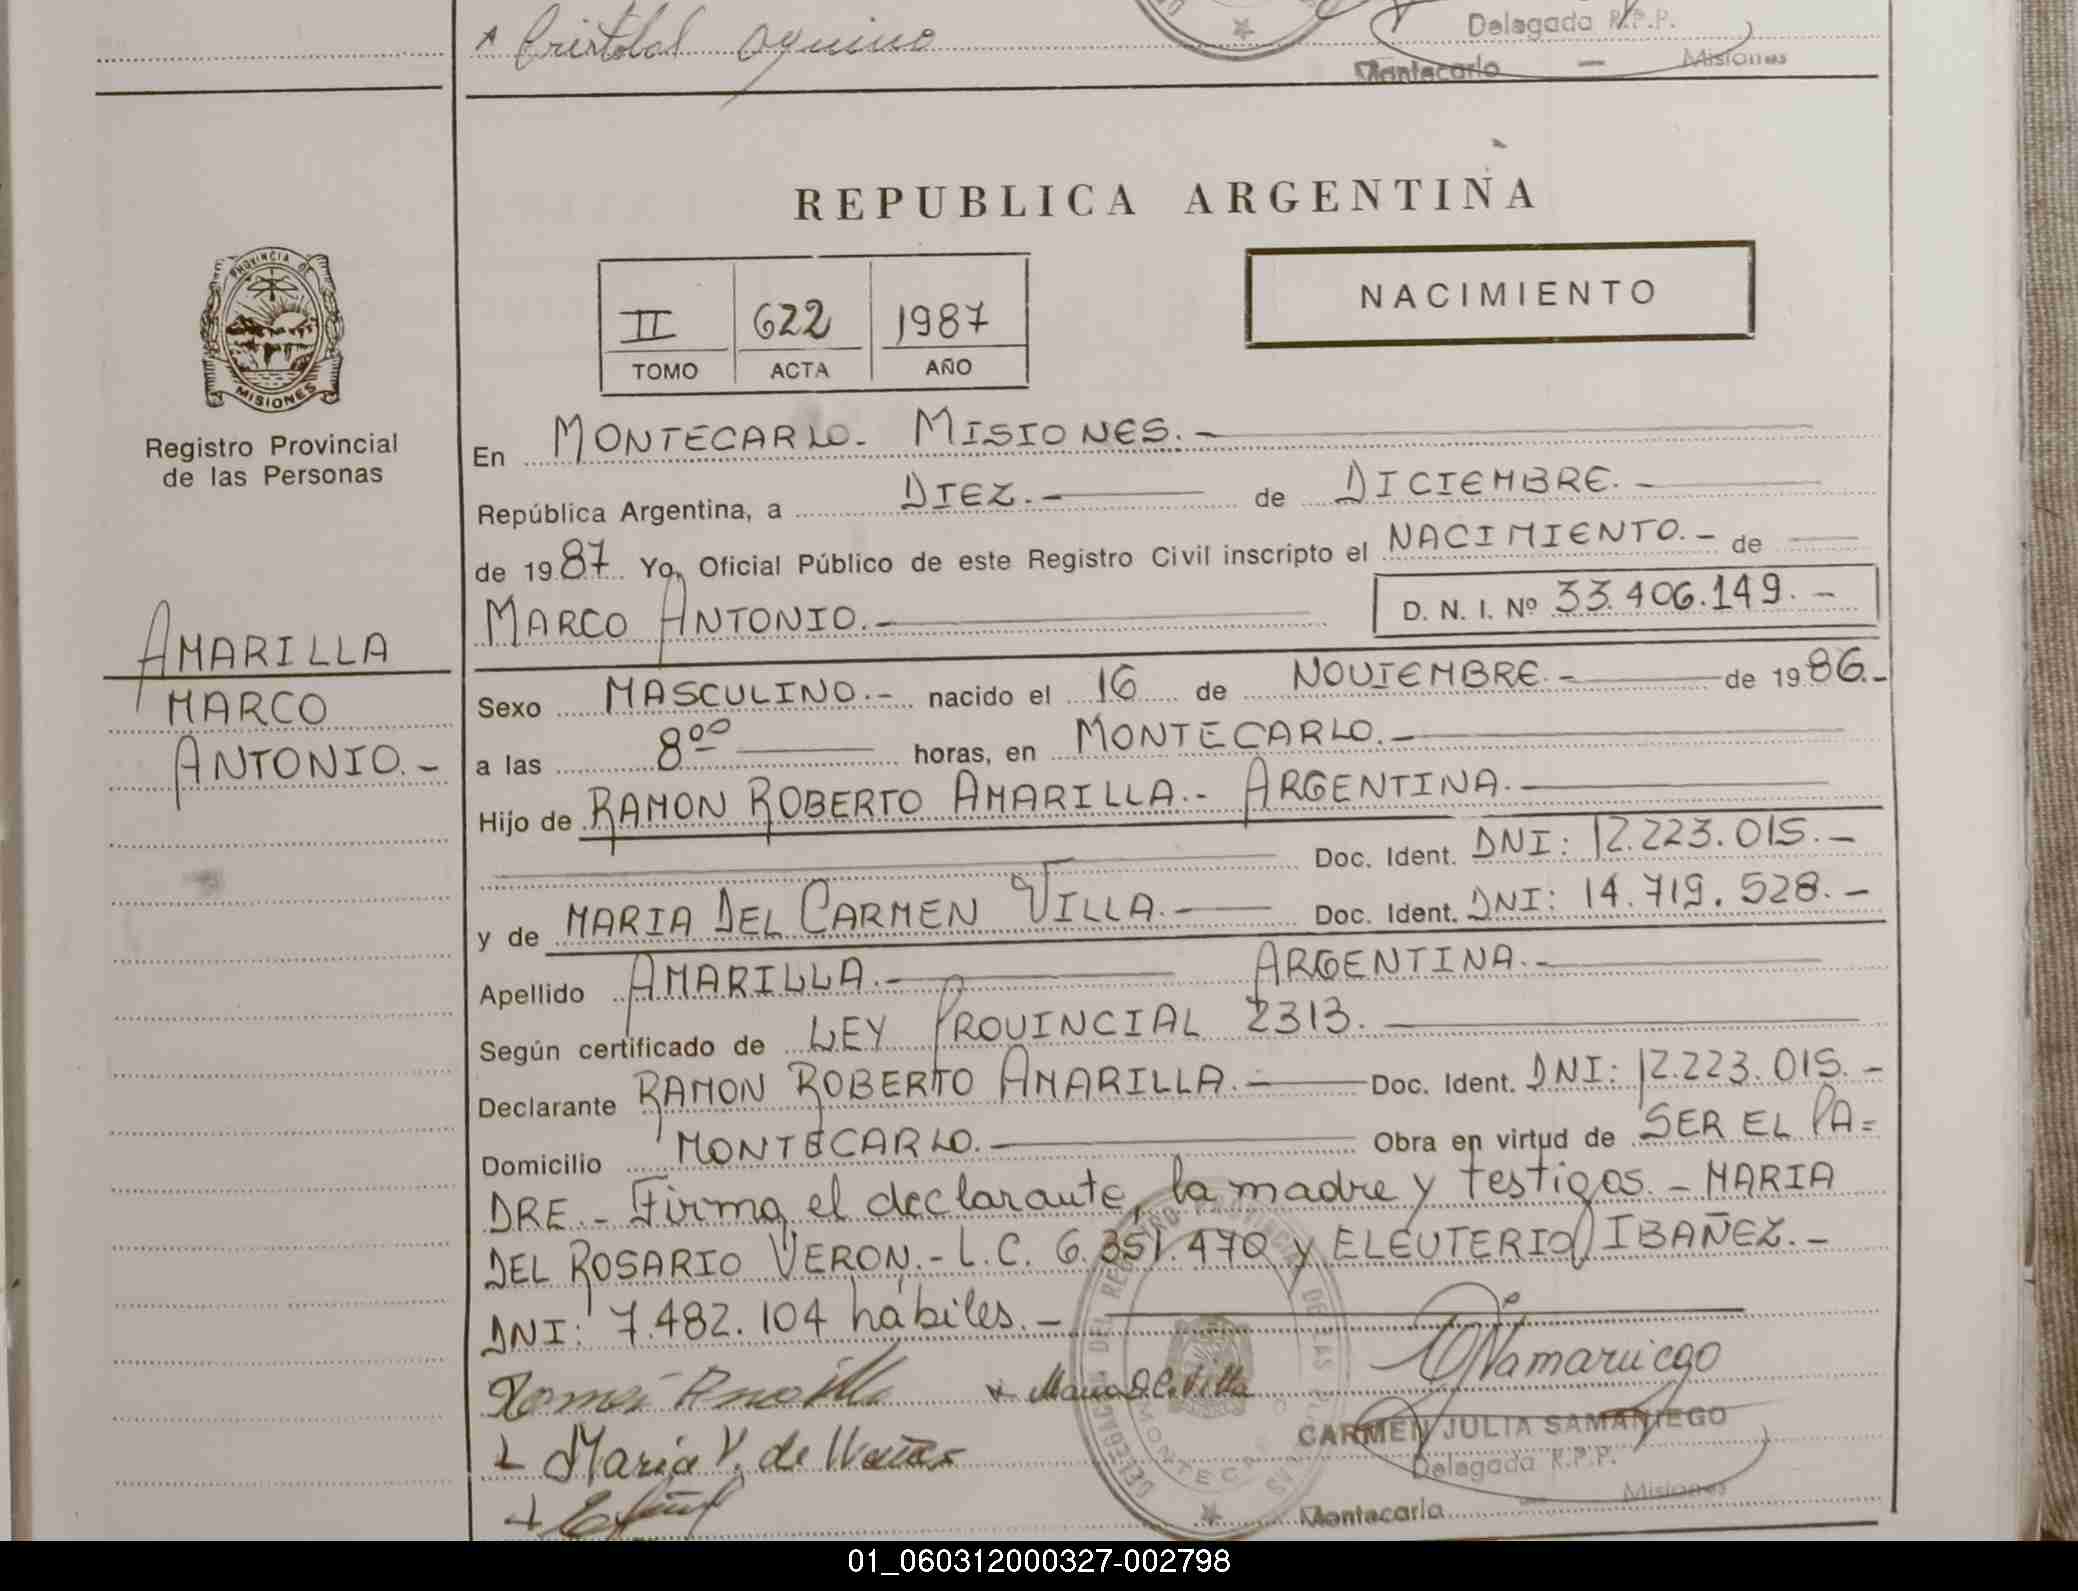 Cristobal Aquino
Delegada R.P.P.
Montecarlo — Misiones
REPUBLICA ARGENTINA
PROVINCIA DE
MISIONES
Registro Provincial
de las Personas
II 622 1987
TOMO ACTA AÑO
NACIMIENTO
En MONTECARLO. MISIONES.-
República Argentina, a DIEZ.- de DICIEMBRE.-
de 1987 Yo, Oficial Público de este Registro Civil inscripto el NACIMIENTO.- de
MARCO ANTONIO.- D. N. I. Nº 33.406.149.-
AMARILLA
MARCO
ANTONIO.-
Sexo MASCULINO.- nacido el 16 de NOVIEMBRE.- de 1986.-
a las 8ºº horas, en MONTECARLO.-
Hijo de RAMON ROBERTO AMARILLA.- ARGENTINA.-
Doc. Ident. DNI: 12.223.015.-
y de MARIA DEL CARMEN VILLA.- Doc. Ident. DNI: 14.719.528.-
Apellido AMARILLA.- ARGENTINA.-
Según certificado de LEY PROVINCIAL 2313.
Declarante RAMON ROBERTO AMARILLA.- Doc. Ident. DNI: 12.223.015.-
Domicilio MONTECARLO.- Obra en virtud de SER EL PA=
DRE.- Firma el declarante, la madre y testigos.- MARIA
DEL ROSARIO VERON.- L.C. 6.351.470 y ELEUTERIO IBAÑEZ.-
DNI: 7.482.104 hábiles.-
Maria D.C. Villa
María V. de
CARMEN JULIA SAMANIEGO
Delegada R.P.P.
Montecarlo — Misiones
DELEGACION DEL REGISTRO PROVINCIAL DE LAS PERSONAS
01_060312000327-002798